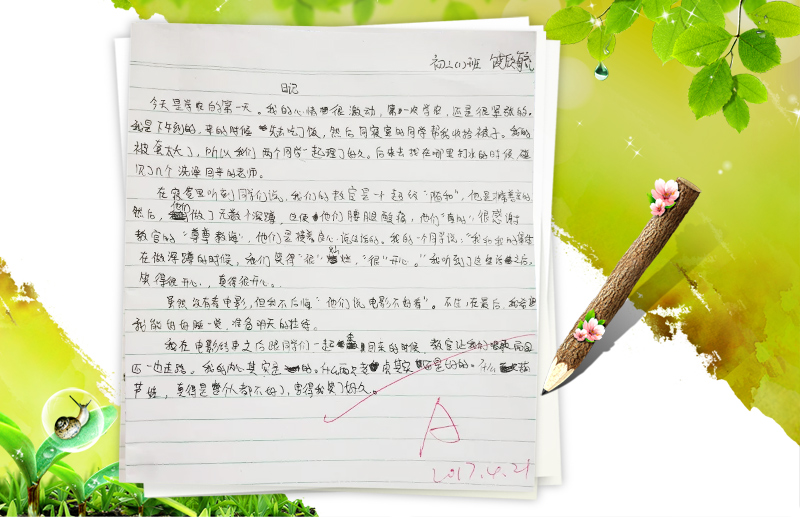 初二(1)班
日记
今天是学农的第一天。我的心情很激动,第一次学农,还是很紧张的。
我是下午到的,来的时候先去吃了饭,然后同寝室的同学帮我收拾被子。我的
被套太大了,所以我们两个同学一起理了好久。后来去找在哪里打水的时候,碰
见了几个洗澡回来的老师。
在寝室里听到同学们说,我们的教官是一个超级"随和",他是
然后,他们做了无数个深蹲,这使他们腰腿酸痛,他们"真的"很感谢
教官的"尊尊教诲",他们是摸着良心说这话的。我的一个同学说:"我和我的
在做深蹲的时候,我们笑得"很"灿烂,"很"开心。"我听到了这些话之后,
笑得很开心,真得很开心。
虽然没有看电影,但会不后悔"他们说电影不好看"。不过,在最后,我希望
我能好好睡一觉,准备明天的拉练。
我在电影结束之后跟同学们一起回来的时候,教官让我们
一边走路。我的内心其实是的。什么
芦娃,真得是整个人都不好了,害得我笑了好久。
A
2017.4.21